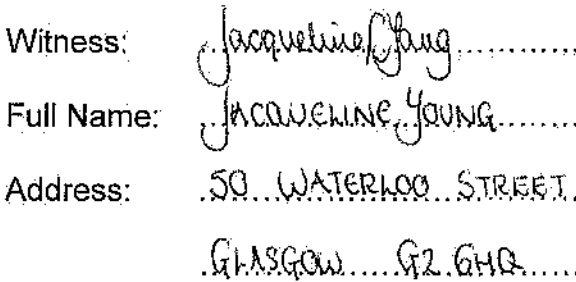 Witness: Jacqueline Young
Full Name: JACQUELINE YOUNG
Address: 50 WATERLOO STREET
GLASGOW G2 6HQ